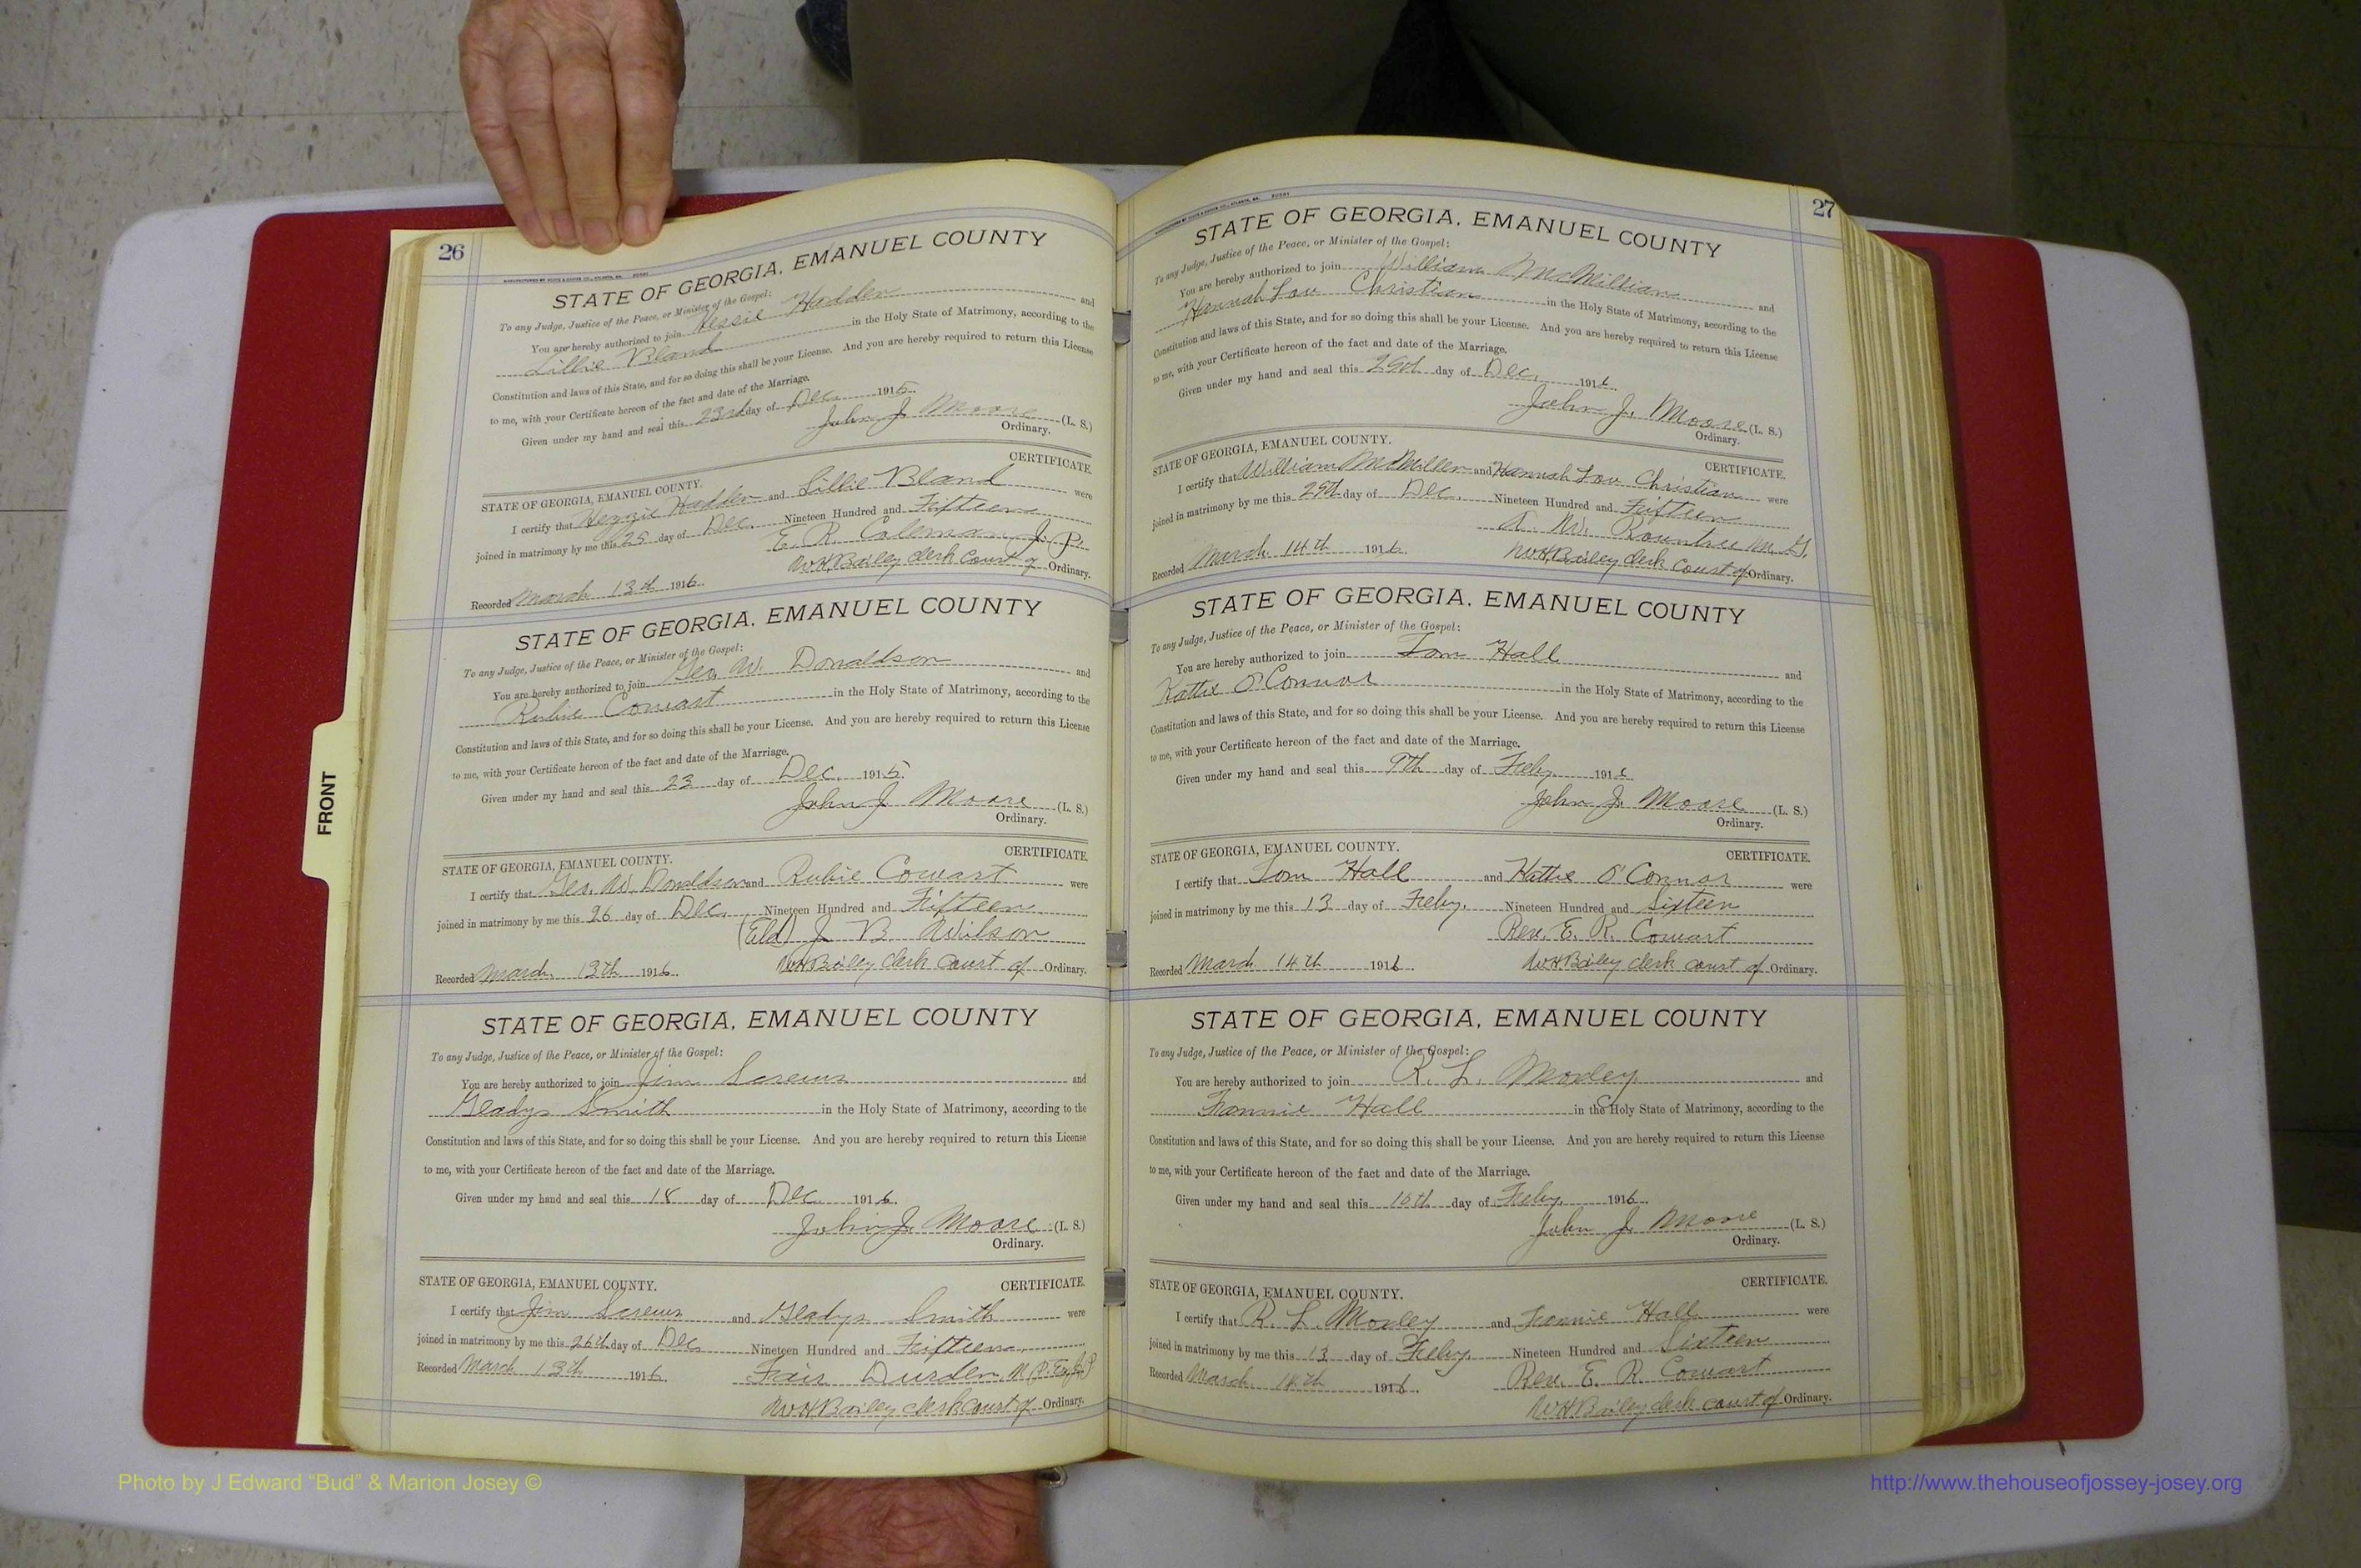 26
STATE OF GEORGIA, EMANUEL COUNTY
To any Judge, Justice of the Peace, or Minister of the Gospel:
You are hereby authorized to join Hadden and
Lillie Bland in the Holy State of Matrimony, according to the
Constitution and laws of this State, and for so doing this shall be your License. And you are hereby required to return this License
to me, with your Certificate hereon of the fact and date of the Marriage.
Given under my hand and seal this 23rd day of Dec. 1915.
John J. Moore (L. S.)
Ordinary.
CERTIFICATE.
STATE OF GEORGIA, EMANUEL COUNTY.
I certify that Hadden and Lillie Bland were
joined in matrimony by me this 25 day of Dec. Nineteen Hundred and Fifteen
E. R. Coleman J. P.
Recorded March 13th 1916. W.H. Bailey Clerk Court of Ordinary.
STATE OF GEORGIA, EMANUEL COUNTY
To any Judge, Justice of the Peace, or Minister of the Gospel:
You are hereby authorized to join Geo. W. Donaldson and
Rubie Cowart in the Holy State of Matrimony, according to the
Constitution and laws of this State, and for so doing this shall be your License. And you are hereby required to return this License
to me, with your Certificate hereon of the fact and date of the Marriage.
Given under my hand and seal this 23 day of Dec. 1915.
John J. Moore (L. S.)
Ordinary.
CERTIFICATE.
STATE OF GEORGIA, EMANUEL COUNTY.
I certify that Geo. W. Donaldson and Rubie Cowart were
joined in matrimony by me this 26 day of Dec. Nineteen Hundred and Fifteen
(Eld) J. B. Wilson
Recorded March 13th 1916. W.H. Bailey Clerk Court of Ordinary.
STATE OF GEORGIA, EMANUEL COUNTY
To any Judge, Justice of the Peace, or Minister of the Gospel:
You are hereby authorized to join Jim Screws and
Gladys Smith in the Holy State of Matrimony, according to the
Constitution and laws of this State, and for so doing this shall be your License. And you are hereby required to return this License
to me, with your Certificate hereon of the fact and date of the Marriage.
Given under my hand and seal this 18 day of Dec 1916.
John J. Moore (L. S.)
Ordinary.
STATE OF GEORGIA, EMANUEL COUNTY. CERTIFICATE.
I certify that Jim Screws and Gladys Smith were
joined in matrimony by me this 26th day of Dec Nineteen Hundred and Fifteen
Recorded March 13th 1916. Fair Durden
W.H. Bailey Clerk Court of Ordinary.
27
STATE OF GEORGIA, EMANUEL COUNTY
To any Judge, Justice of the Peace, or Minister of the Gospel:
You are hereby authorized to join William McMillian and
Hannah Lou Christian in the Holy State of Matrimony, according to the
Constitution and laws of this State, and for so doing this shall be your License. And you are hereby required to return this License
to me, with your Certificate hereon of the fact and date of the Marriage.
Given under my hand and seal this day of Dec. 1916.
John J. Moore (L. S.)
Ordinary.
STATE OF GEORGIA, EMANUEL COUNTY. CERTIFICATE.
I certify that William McMillen and Hannah Lou Christian were
joined in matrimony by me this 29th day of Dec. Nineteen Hundred and Fifteen
W. Rountree M. G.
Recorded March 14th 1916. W.H. Bailey Clerk Court of Ordinary.
STATE OF GEORGIA, EMANUEL COUNTY
To any Judge, Justice of the Peace, or Minister of the Gospel:
You are hereby authorized to join Tom Hall and
Kattie O'Connor in the Holy State of Matrimony, according to the
Constitution and laws of this State, and for so doing this shall be your License. And you are hereby required to return this License
to me, with your Certificate hereon of the fact and date of the Marriage.
Given under my hand and seal this 9th day of Feby. 1916
John J. Moore (L. S.)
Ordinary.
STATE OF GEORGIA, EMANUEL COUNTY. CERTIFICATE.
I certify that Tom Hall and Kattie O'Connor were
joined in matrimony by me this 13 day of Feby. Nineteen Hundred and Sixteen
Rev. E. R. Cowart
Recorded March 14th 1916. W.H. Bailey Clerk Court of Ordinary.
STATE OF GEORGIA, EMANUEL COUNTY
To any Judge, Justice of the Peace, or Minister of the Gospel:
You are hereby authorized to join R. L. Moxley and
Fannie Hall in the Holy State of Matrimony, according to the
Constitution and laws of this State, and for so doing this shall be your License. And you are hereby required to return this License
to me, with your Certificate hereon of the fact and date of the Marriage.
Given under my hand and seal this 10th day of Feby. 1916.
John J. Moore (L. S.)
Ordinary.
STATE OF GEORGIA, EMANUEL COUNTY. CERTIFICATE.
I certify that R. L. Moxley and Fannie Hall were
joined in matrimony by me this 13 day of Feby. Nineteen Hundred and Sixteen
Recorded March 14th 1916. Rev. E. R. Cowart
W.H. Bailey Clerk Court of Ordinary.
FRONT
Photo by J Edward “Bud” & Marion Josey ©
http://www.thehouseofjossey-josey.org